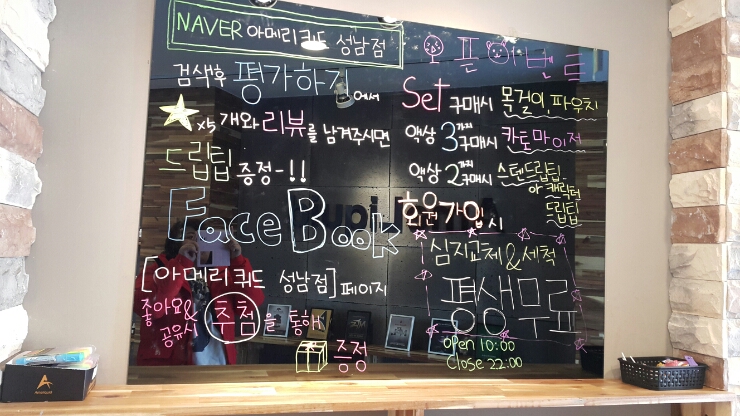 NAVER 아메리쿼드 성남점
검색후 평가하기에서
★x5개와 리뷰를 남겨주시면
드립팁 증정-!!
FaceBook
[아메리쿼드 성남점] 페이지
좋아요&
공유시 추첨을 통해
증정
오픈이벤트
Set 구매시 목걸이, 파우치
액상 3가지 구매시 카토마이저
액상 2가지 구매시 스텐드립팁
or 캐릭터
드립팁
회원가입시
심지교체&세척
평생무료
open 10:00
Close 22:00